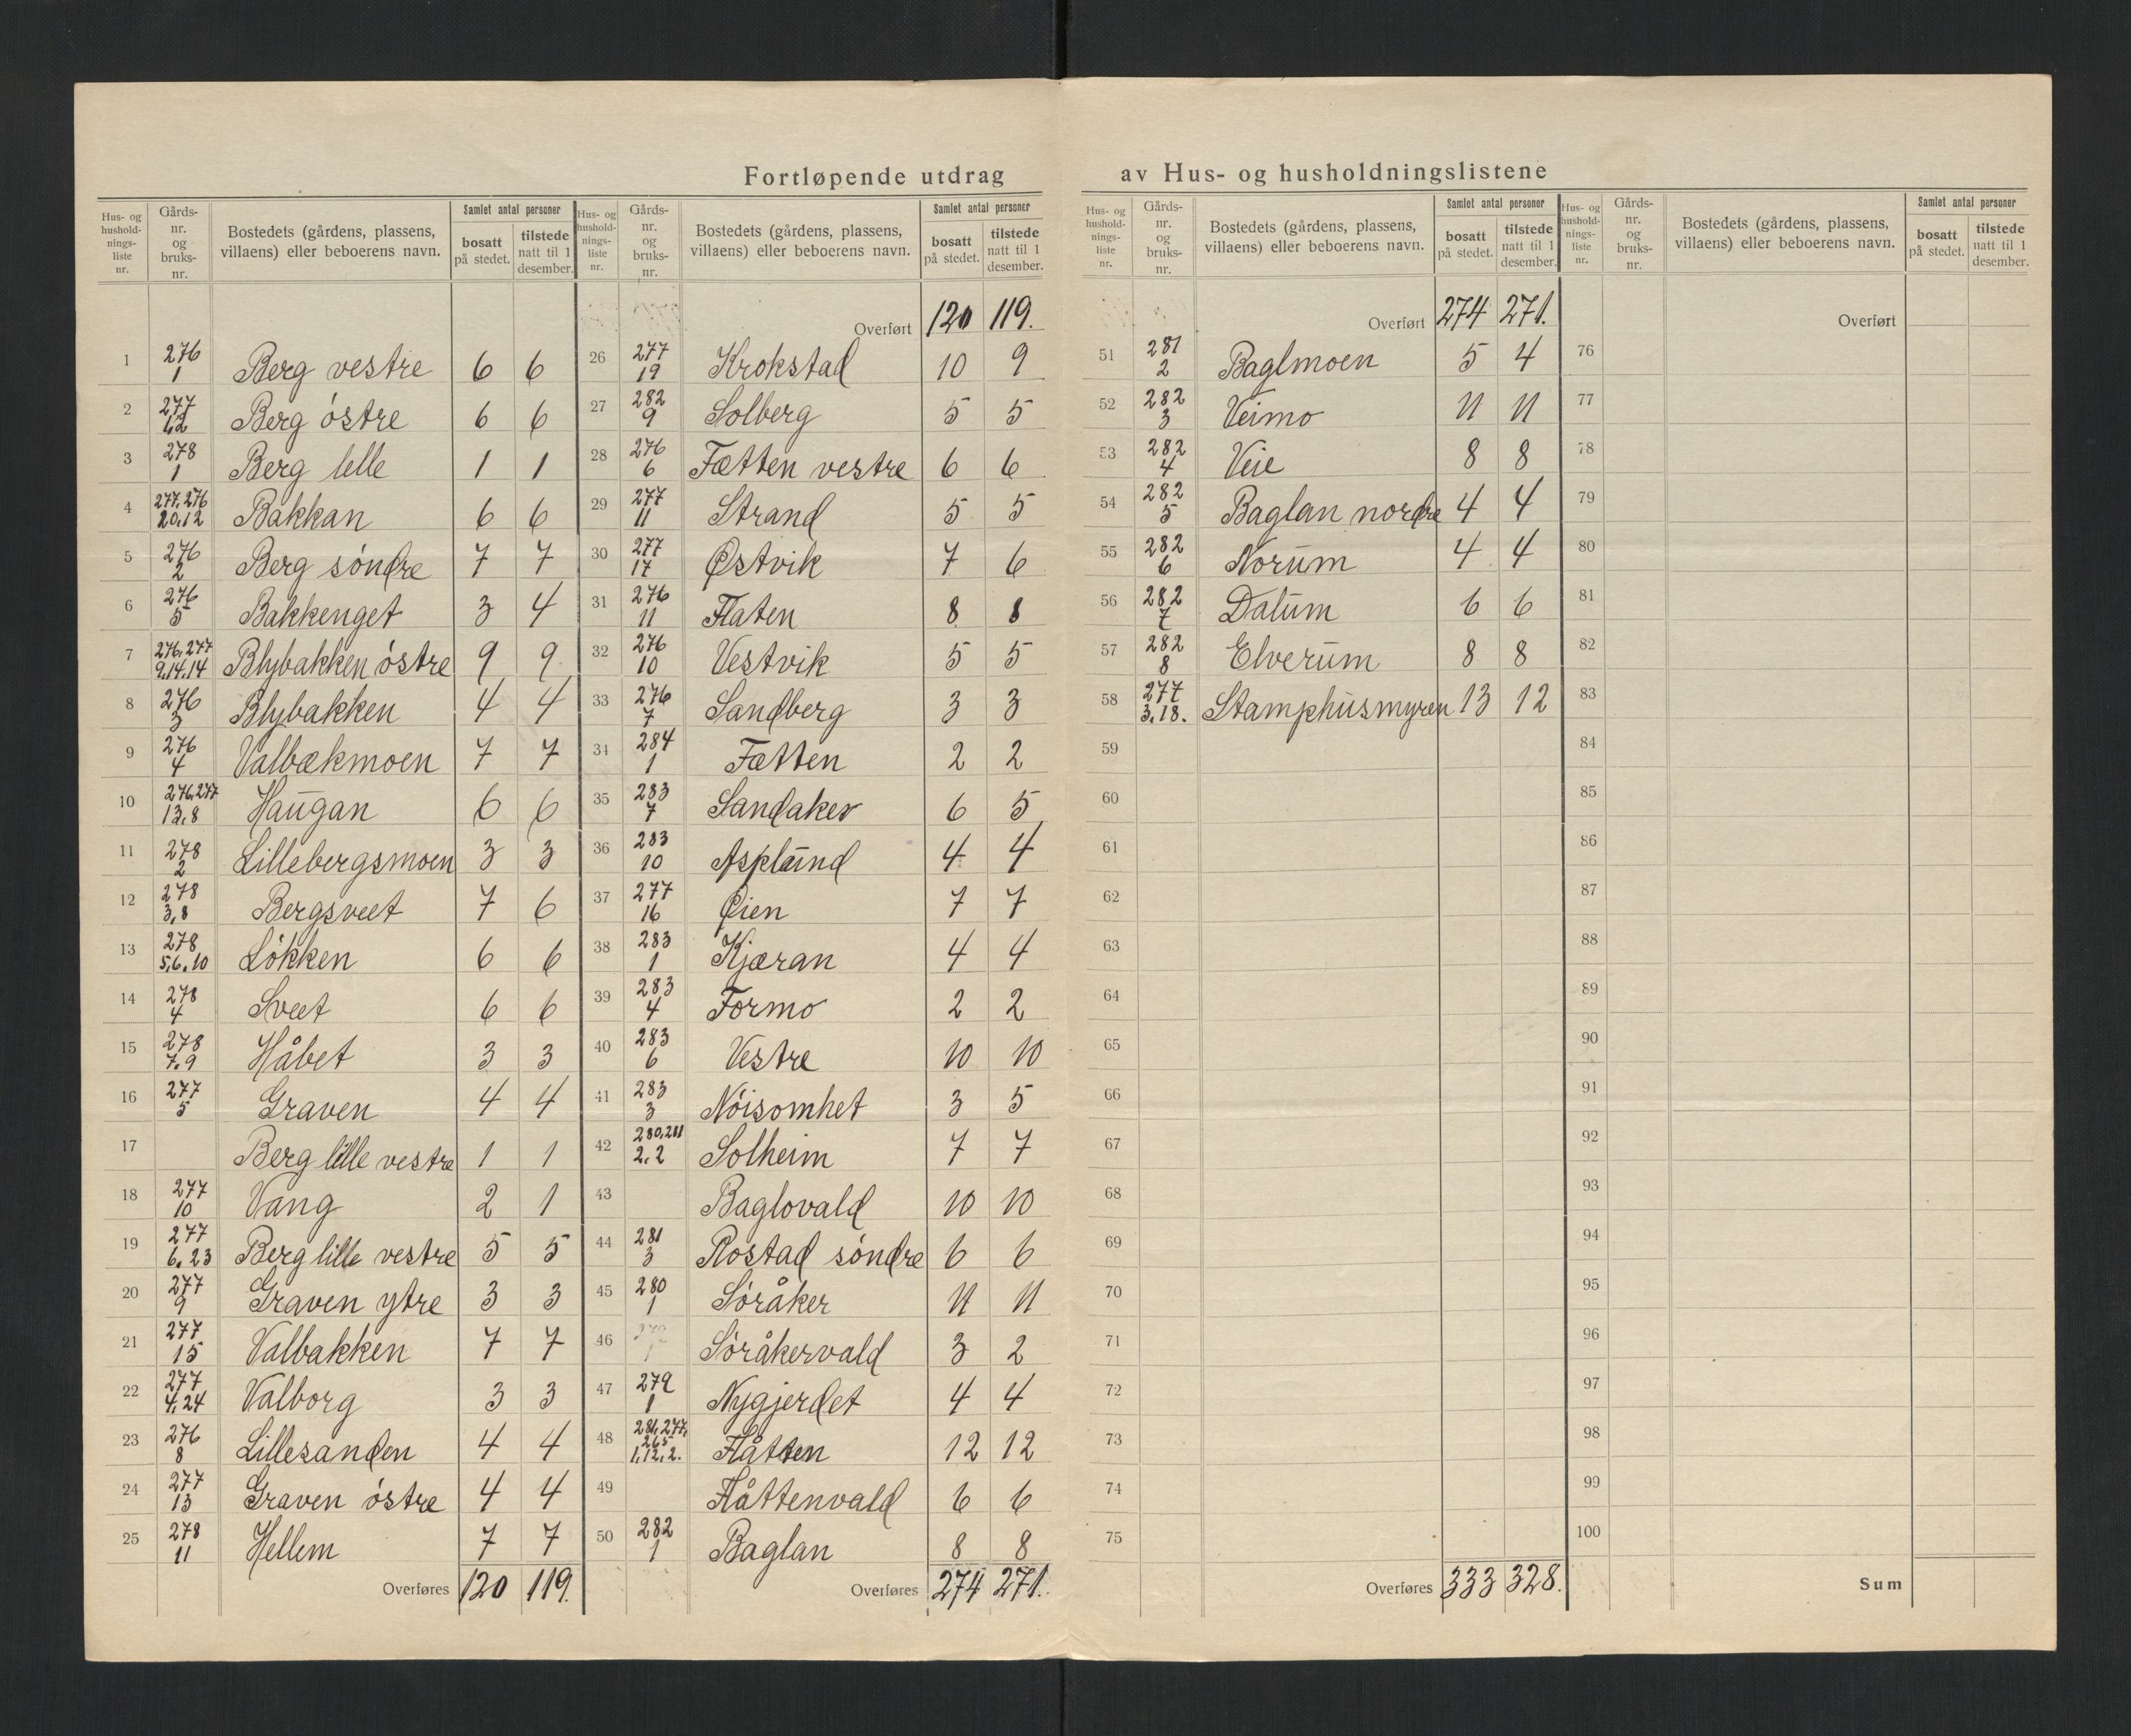 Fortløpende utdrag av Hus- og husholdningslistene
Hus- og hushold- nings- liste nr. | Gårds- nr. og bruks- nr. | Bostedets (gårdens, plassens, villaens) eller beboerens navn. | Samlet antal personer | bosatt på stedet. | tilstede natt til 1 desember.
1 276 1 Berg vestre 6 6
2 277 1,2 Berg östre 6 6
3 278 1 Berg lille 1 1
4 277,276 20,12 Bakkan 6 6
5 276 2 Berg söndre 7 7
6 276 5 Bakkenget 3 4
7 276,277 9,14,14 Blybakken östre 9 9
8 276 3 Blybakken 4 4
9 276 4 Valbækmoen 7 7
10 276,277 13,8 Haugan 6 6
11 278 2 Lillebergsmoen 3 3
12 278 3,8 Bergsveet 7 6
13 278 5,6,10 Lökken 6 6
14 278 4 Sveet 6 6
15 278 7,9 Håbet 3 3
16 277 5 Graven 4 4
17 Berg lille vestre 1 1
18 277 10 Vang 2 1
19 277 6,23 Berg lille vestre 5 5
20 277 9 Graven ytre 3 3
21 277 15 Valbakken 7 7
22 277 4,24 Valborg 3 3
23 276 8 Lillesanden 4 4
24 277 13 Graven östre 4 4
25 278 11 Hellem 7 7
Overføres 120 119.
Hus- og hushold- nings- liste nr. | Gårds- nr. og bruks- nr. | Bostedets (gårdens, plassens, villaens) eller beboerens navn. | Samlet antal personer | bosatt på stedet. | tilstede natt til 1 desember.
Overført 120 119.
26 277 19 Krokstad 10 9
27 282 9 Solberg 5 5
28 276 6 Fætten vestre 6 6
29 277 11 Strand 5 5
30 277 17 Østvik 7 6
31 276 11 Flaten 8 8
32 276 10 Vestvik 5 5
33 276 7 Sandberg 3 3
34 284 1 Fætten 2 2
35 283 7 Sandaker 6 5
36 283 10 Asplund 4 4
37 277 16 Øien 7 7
38 283 1 Kjæran 4 4
39 283 4 Formo 2 2
40 283 6 Vestre 10 10
41 283 3 Nöisomhet 3 5
42 280,281 2,2 Solheim 7 7
43 Baglovald 10 10
44 281 3 Rostad söndre 6 6
45 280 1 Söråker 11 11
46 Söråkervald 3 2
47 279 1 Nygjerdet 4 4
48 281,277, 265 1,12,2. Flåtten 12 12
49 Flåttenvald 6 6
50 282 1 Baglan 8 8
Overføres 274 271.
Hus- og hushold- nings- liste nr. | Gårds- nr. og bruks- nr. | Bostedets (gårdens, plassens, villaens) eller beboerens navn. | Samlet antal personer | bosatt på stedet. | tilstede natt til 1 desember.
Overført 274 271.
51 281 2 Baglmoen 5 4
52 282 3 Veimo 11 11
53 282 4 Veie 8 8
54 282 5 Baglan nordre 4 4
55 282 6 Norum 4 4
56 282 7 Dalum 6 6
57 282 8 Elverum 8 8
58 277 3,18. Stamphusmyren 13 12
59
60
61
62
63
64
65
66
67
68
69
70
71
72
73
74
75
Overføres 333 328.
Hus- og hushold- nings- liste nr. | Gårds- nr. og bruks- nr. | Bostedets (gårdens, plassens, villaens) eller beboerens navn. | Samlet antal personer | bosatt på stedet. | tilstede natt til 1 desember.
Overført
76
77
78
79
80
81
82
83
84
85
86
87
88
89
90
91
92
93
94
95
96
97
98
99
100
Sum